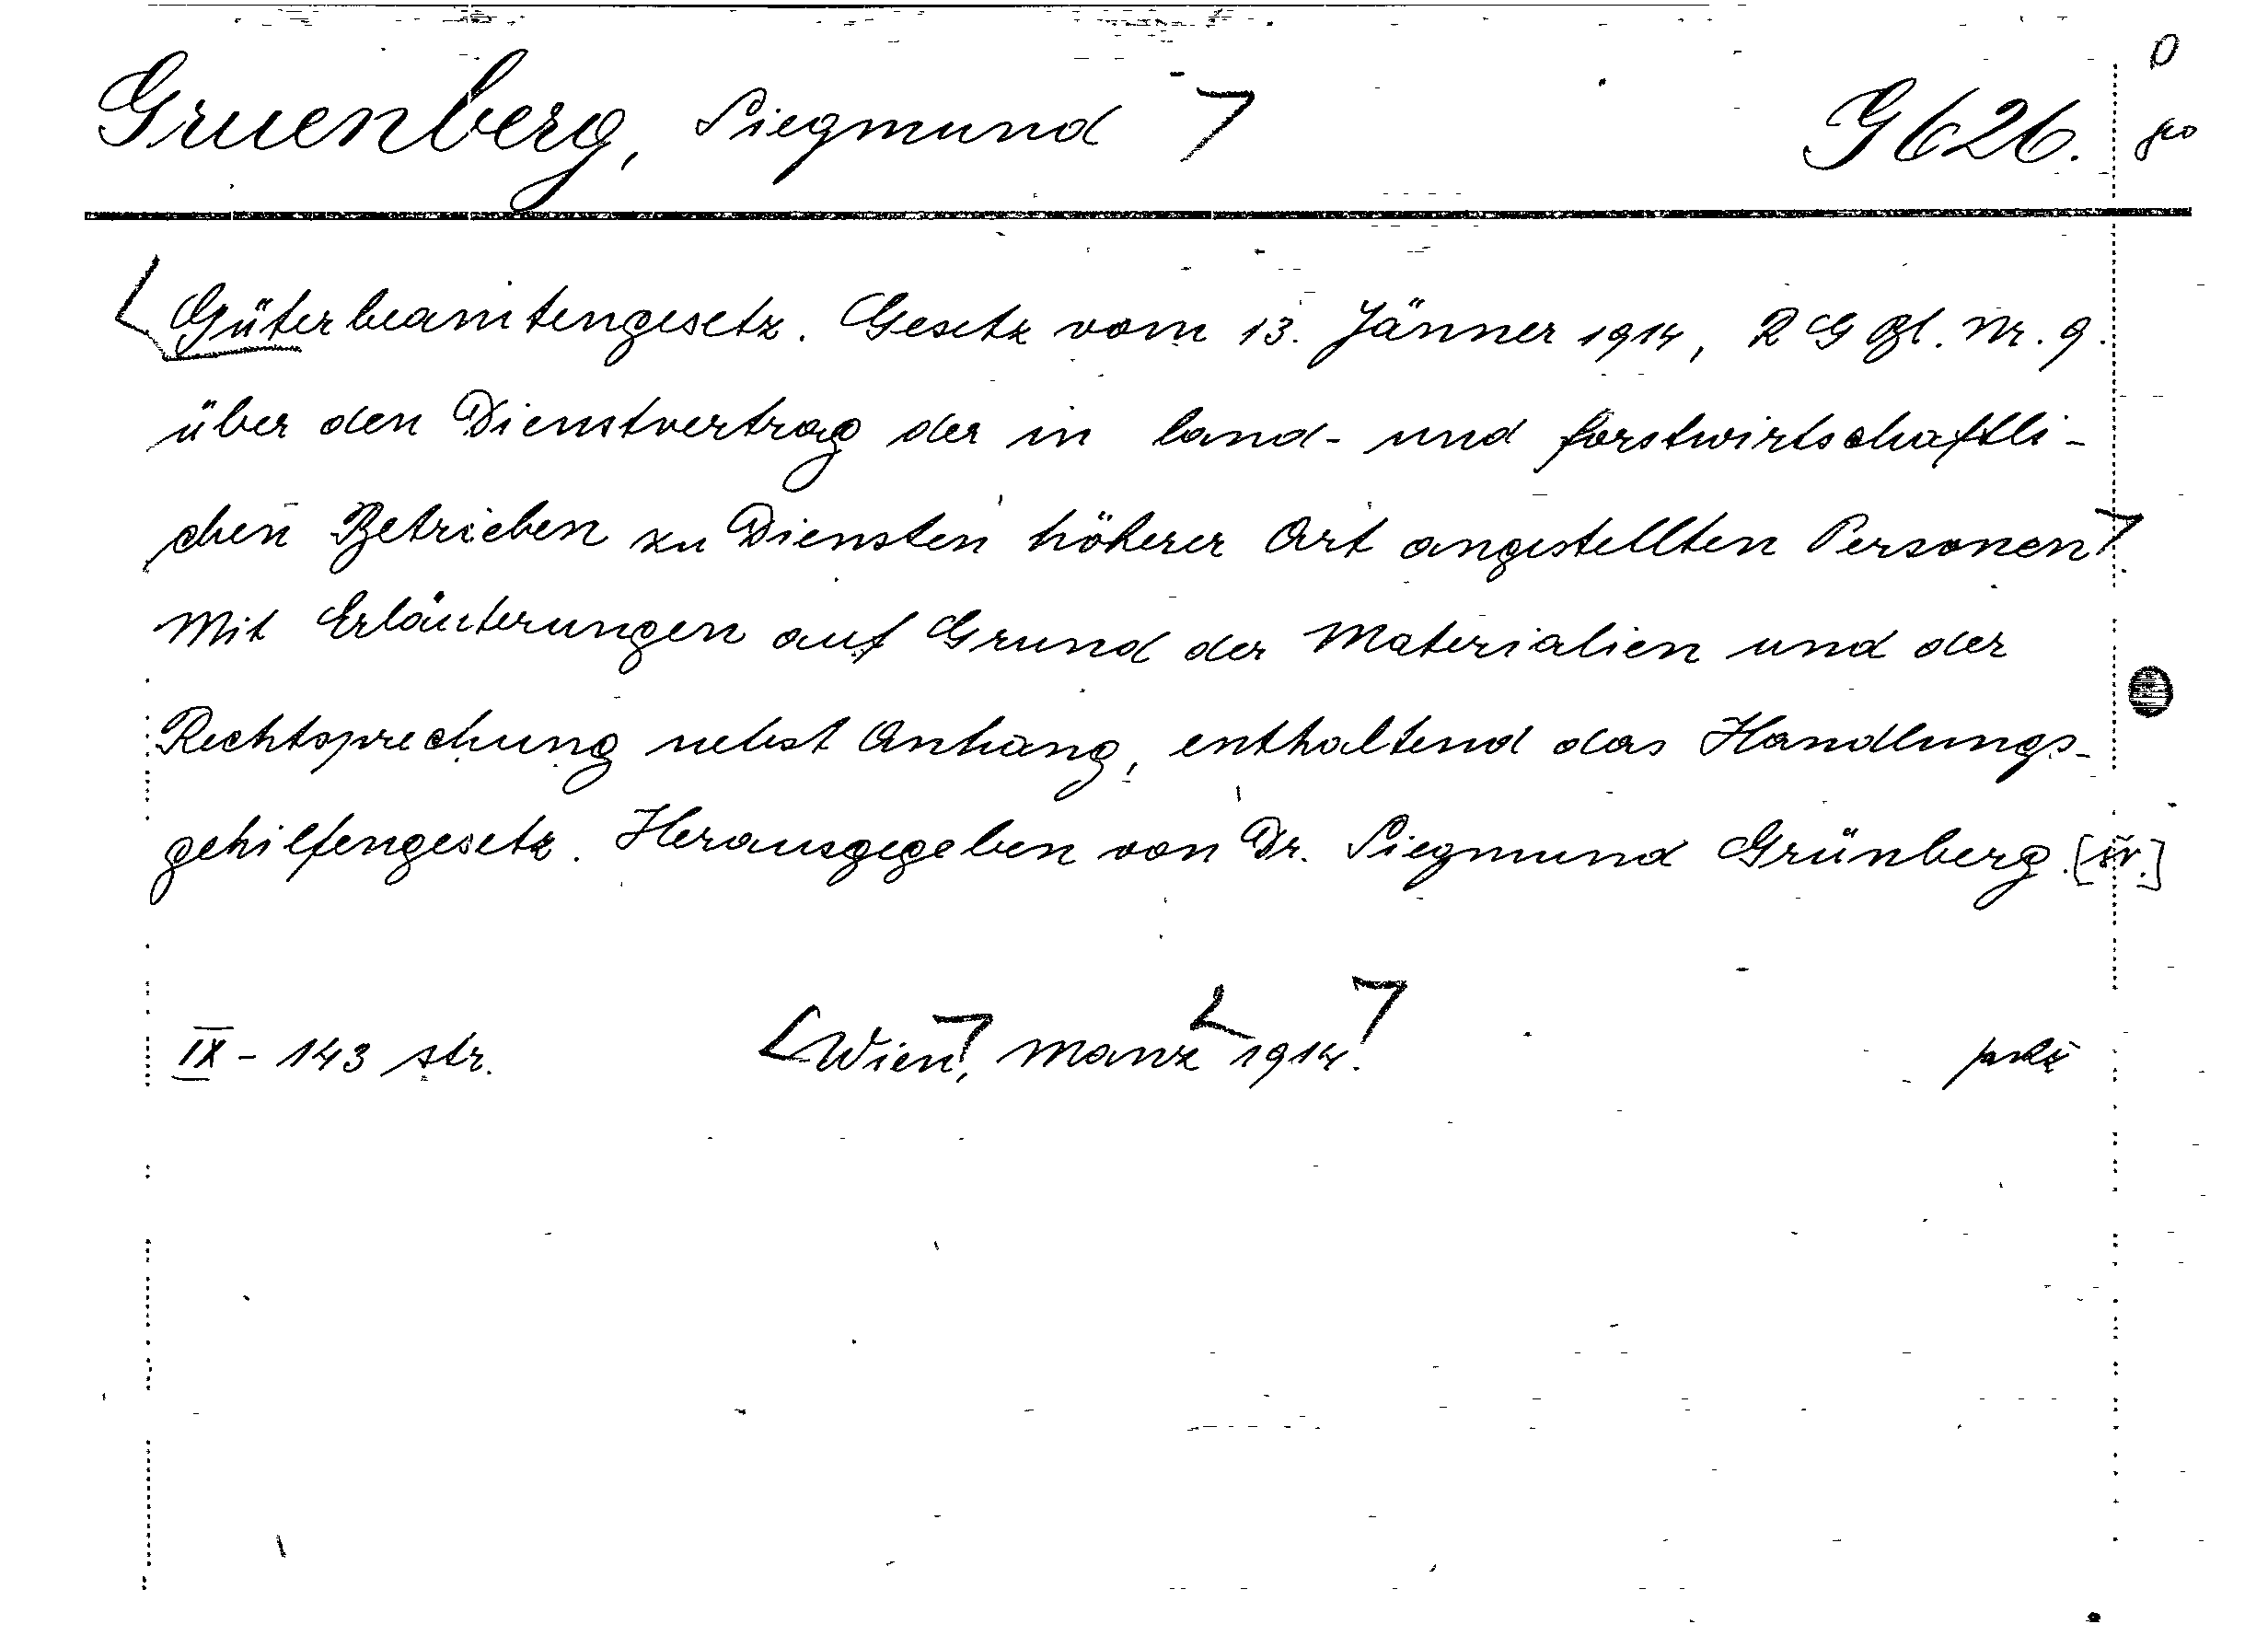 Gruenberg, Siegmund G 626.
Güterbeamtengesetz. Gesetz vom 13. Jänner 1914, RGBl. Nr. 9.
über den Dienstvertrag der in land- und forstwirtschaftli-
chen Betrieben zu Diensten höherer Art angestellten Personen.
Mit Erläuterungen auf Grund der Materialien und der
Rechtsprechung nebst Anhang, enthaltend das Handlungs-
gehilfengesetz. Herausgegeben von Dr. Siegmund Grünberg.
IX - 143 str. Wien, Manz 1914.